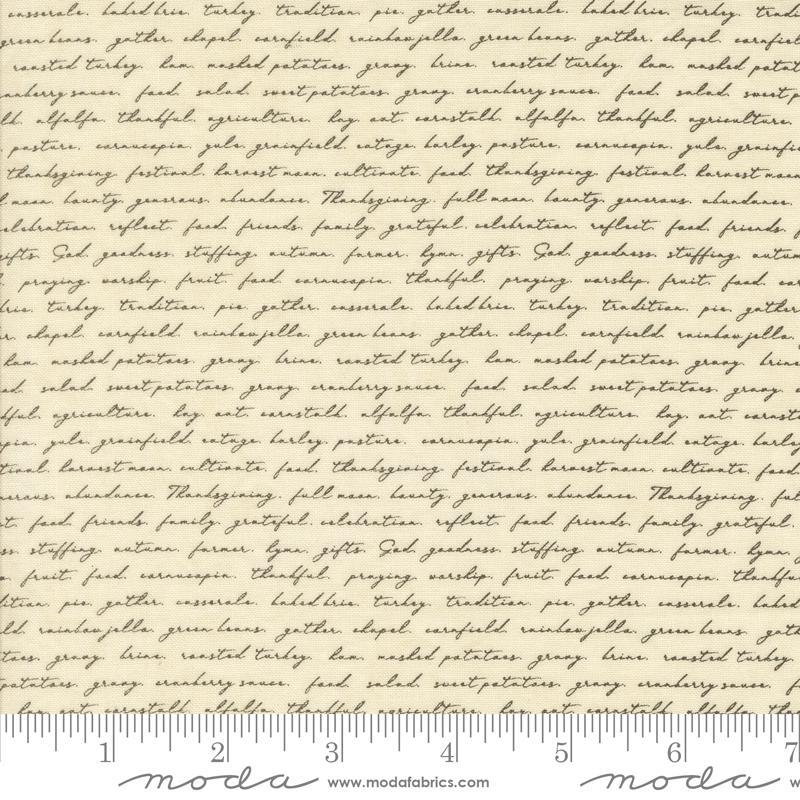 casserole. baked brie. turkey. tradition. pie. gather. casserole. baked brie. turkey. tradi
green beans. gather. chapel. cornfield. rainbow jello. green beans. gather. chapel. cornfiel
roasted turkey. ham. mashed potatoes. gravy. brine. roasted turkey. ham. mashed potat
anberry sauce. food. salad. sweet potatoes. gravy. cranberry sauce. food. salad. sweet p
lk. alfalfa. thankful. agriculture. hay. oat. cornstalk. alfalfa. thankful. agriculture.
pasture. cornucopia. yule. grainfield. cotage. barley. pasture. cornucopia. yule. grainfie
thanksgiving. festival. harvest moon. cultivate. food. thanksgiving. festival. harvest moon
l moon. bounty. generous. abundance. Thanksgiving. full moon. bounty. generous. abundance.
celebration. reflect. food. friends. family. grateful. celebration. reflect. food. friends. f
gifts. God. goodness. stuffing. autumn. farmer. hymn. gifts. God. goodness. stuffing. autum
l. praying. worship. fruit. food. cornucopia. thankful. praying. worship. fruit. food. co
brie. turkey. tradition. pie. gather. casserole. baked brie. turkey. tradition. pie. gather
r. chapel. cornfield. rainbow jello. green beans. gather. chapel. cornfield. rainbow jello.
ham. mashed potatoes. gravy. brine. roasted turkey. ham. mashed potatoes. gravy. brine
od. salad. sweet potatoes. gravy. cranberry sauce. food. salad. sweet potatoes. gravy. c
kful. agriculture. hay. oat. cornstalk. alfalfa. thankful. agriculture. hay. oat. cornst
opia. yule. grainfield. cotage. barley. pasture. cornucopia. yule. grainfield. cotage. barley
tival. harvest moon. cultivate. food. thanksgiving. festival. harvest moon. cultivate. food.
nerous. abundance. Thanksgiving. full moon. bounty. generous. abundance. Thanksgiving. ful
t. food. friends. family. grateful. celebration. reflect. food. friends. family. grateful.
ss. stuffing. autumn. farmer. hymn. gifts. God. goodness. stuffing. autumn. farmer. hymn. g
p. fruit. food. cornucopia. thankful. praying. worship. fruit. food. cornucopia. thankfu
dition. pie. gather. casserole. baked brie. turkey. tradition. pie. gather. casserole. baked
ld. rainbow jello. green beans. gather. chapel. cornfield. rainbow jello. green beans. gath
toes. gravy. brine. roasted turkey. ham. mashed potatoes. gravy. brine. roasted turkey.
potatoes. gravy. cranberry sauce. food. salad. sweet potatoes. gravy. cranberry sauce. f
hay. oat. cornstalk. alfalfa. thankful. agriculture. hay. oat. cornstalk. alfalfa. tha
1 2 3 4 5 6 7
moda www.modafabrics.com moda w